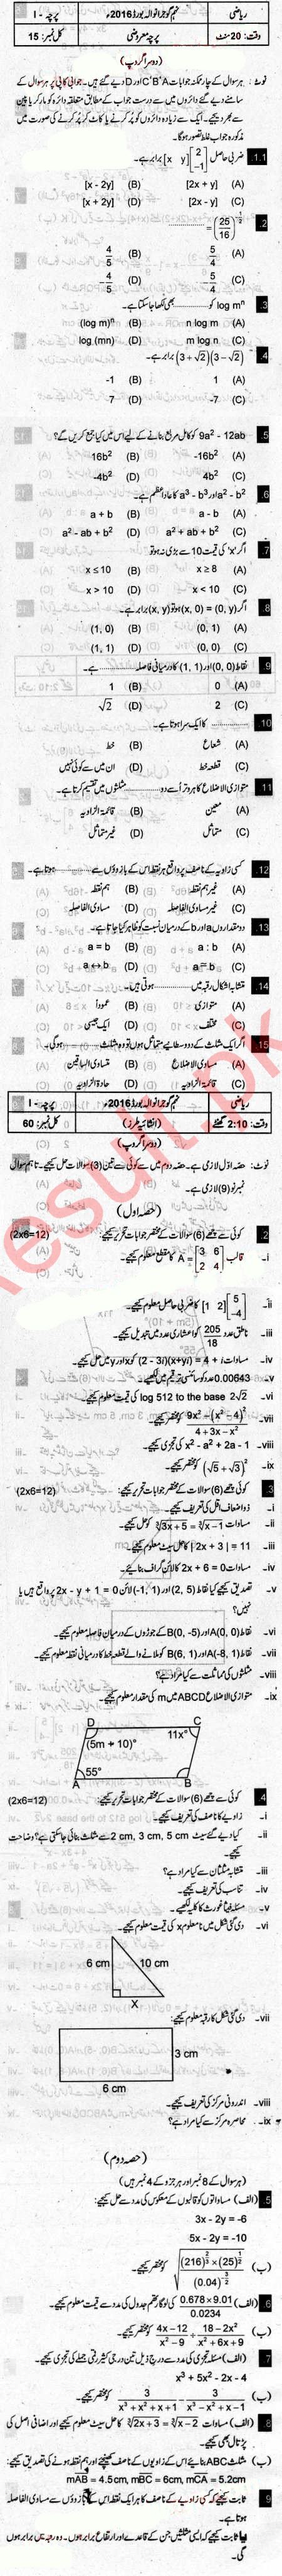 ریاضی نہم گوجرانوالہ بورڈ 2016ء پرچہ - I
وقت: 20 منٹ پرچہ معروضی کل نمبر: 15
(دوسرا گروپ)
نوٹ: ہر سوال کے چار ممکنہ جوابات A'B'C اور D دیے گئے ہیں۔ جوابی کاپی پر ہر سوال کے
سامنے دیے گئے دائروں میں سے درست جواب کے مطابق متعلقہ دائرہ کو مارکر یا پین
سے بھر دیجیے۔ ایک سے زیادہ دائروں کو پُر کرنے یا کاٹ کر پُر کرنے کی صورت میں
مذکورہ جواب غلط تصور ہوگا۔
1.1 ضربی حاصل [x y][2 -1] برابر ہے۔
(A) [2x + y] (B) [x - 2y]
(C) [2x - y] (D) [x + 2y]
.2 (25/16)^(-1/2) = ............
(A) 5/4 (B) 4/5
(C) -5/4 (D) -4/5
.3 log mⁿ کو ............ بھی لکھا جا سکتا ہے۔
(A) n log m (B) (log m)ⁿ
(C) m log n (D) log (mn)
.4 (3 + √2)(3 - √2) برابر ہے۔
(A) 1 (B) -1
(C) -7 (D) 7
.5 9a² - 12ab کو کامل مربع بنانے کے لیے اس میں کیا جمع کریں گے؟
(A) -16b² (B) 16b²
(C) 4b² (D) -4b²
.6 a² - b² اور a³ - b³ کا عاد اعظم ہے۔
(A) a - b (B) a + b
(C) a² + ab + b² (D) a² - ab + b²
.7 اگر 'x' کی قیمت 10 سے بڑی نہ ہو تو
(A) x ≥ 8 (B) x ≤ 10
(C) x < 10 (D) x > 10
.8 اگر (x, 0) = (0, y) ہو تو (x, y) برابر ہے۔
(A) (0, 1) (B) (1, 0)
(C) (0, 0) (D) (1, 1)
.9 نقاط (0, 0) اور (1, 1) کا درمیانی فاصلہ ............ ہے۔
(A) 0 (B) 1
(C) 2 (D) √2
.10 ............ کا ایک سرا ہوتا ہے۔
(A) شعاع (B) خط
(C) قطعہ خط (D) ان میں سے کوئی نہیں
.11 متوازی الاضلاع کا ہر وتر اُسے دو ............ مثلثوں میں تقسیم کرتا ہے۔
(A) معین (B) قائمۃ الزاویہ
(C) متماثل (D) غیر متماثل
.12 کسی زاویہ کے ناصف پر واقع ہر نقطہ اس کے بازوؤں سے ............ ہوتا ہے۔
(A) غیر ہم نقطہ (B) ہم نقطہ
(C) غیر مساوی الفاصلہ (D) مساوی الفاصلہ
.13 دو مقداروں a اور b کے درمیان نسبت کو ظاہر کیا جاتا ہے۔
(A) a : b (B) a = b
(C) a ≅ b (D) a ↔ b
.14 متشابہ اشکال رقبہ میں ............ ہوتی ہیں۔
(A) متوازی (B) عموداً
(C) مختلف (D) ایک جیسی
.15 اگر ایک مثلث کے دو وسطانیے متماثل ہوں تو وہ مثلث ............ ہوگی۔
(A) مساوی الاضلاع (B) متساوی الساقین
(C) قائمۃ الزاویہ (D) حادۃ الزاویہ
ریاضی نہم گوجرانوالہ بورڈ 2016ء پرچہ - I
وقت: 2:10 گھنٹے (انشائیہ طرز) کل نمبر: 60
(دوسرا گروپ)
نوٹ: حصہ اول لازمی ہے۔ حصہ دوم میں سے کوئی سے تین (3) سوالات حل کیجیے۔ تاہم سوال
نمبر نو (9) لازمی ہے۔
(حصہ اول)
.2 کوئی سے چھے (6) سوالات کے مختصر جوابات تحریر کیجیے: (2x6=12)
-i قالب A = [3 6 2 4] کا مقطع معلوم کیجیے۔
-ii [1 2][5 -4] کا ضربی حاصل معلوم کیجیے۔
-iii ناطق عدد 205/18 کو اعشاری عدد میں تبدیل کیجیے۔
-iv مساوات (2 - 3i)(x+yi) = 4 + i کو x اور y میں حل کیجیے۔
-v 0.00643 عدد کو سائنسی ترقیم میں لکھیے۔
-vi log 512 to the base 2√2 کی قیمت معلوم کیجیے۔
-vii (9x² - (x² - 4)²)/(4 + 3x - x²) کو مختصر کیجیے۔
-viii x² - a² + 2a - 1 کی تجزی کیجیے۔
-ix (√5 + √3)² کو مختصر کیجیے۔
.3 کوئی سے چھے (6) سوالات کے مختصر جوابات تحریر کیجیے: (2x6=12)
-i ذواضعاف اقل کی تعریف کیجیے۔
-ii مساوات ∛(3x + 5) = ∛(x - 1) کو حل کیجیے۔
-iii |2x + 3| = 11 کا حل سیٹ معلوم کیجیے۔
-iv مساوات 2x + 6 = 0 کا لائن گراف بنائیے۔
-v تصدیق کیجیے کیا نقاط (2, 5) اور (-1, 1) لائن 2x - y + 1 = 0 پر واقع ہیں یا
نہیں؟
-vi نقاط A(0, 0) اور B(0, -5) کے جوڑوں کے درمیان فاصلہ معلوم کیجیے۔
-vii نقاط A(-8, 1) اور B(6, 1) کو ملانے والے قطعہ خط کا درمیانی نقطہ معلوم کیجیے۔
-viii مثلثوں کی مماثلت سے کیا مراد ہے؟
-ix متوازی الاضلاع ABCD میں m کی مقدار معلوم کیجیے۔
D C
11x°
(5m + 10)°
55°
A B
.4 کوئی سے چھے (6) سوالات کے مختصر جوابات تحریر کیجیے: (2x6=12)
-i زاویے کا ناصف کی تعریف کیجیے۔
-ii کیا دیے گئے سیٹ 2 cm, 3 cm, 5 cm سے مثلث بنائی جا سکتی ہے؟ وضاحت
کیجیے۔
-iii متشابہ مثلثان سے کیا مراد ہے؟
-iv تناسب کی تعریف کیجیے۔
-v مسئلہ فیثا غورث کا کلیہ لکھیے۔
-vi دی گئی شکل میں نامعلوم x کی قیمت معلوم کیجیے۔
6 cm 10 cm
X
-vii دی گئی شکل کا رقبہ معلوم کیجیے:
3 cm
6 cm
-viii اندرونی مرکز کی تعریف کیجیے۔
-ix محاصرہ مرکز سے کیا مراد ہے؟
(حصہ دوم)
(ہر سوال کے 8 نمبر اور ہر جزو کے 4 نمبر ہیں)
.5 (الف) مساواتوں کو قالبوں کے معکوس کی مدد سے حل کیجیے:
3x - 2y = -6
5x - 2y = -10
(ب) √((216)^(2/3) × (25)^(1/2) / (0.04)^(-3/2)) کو مختصر کیجیے۔
.6 (الف) 0.678 × 9.01 / 0.0234 کی لوگارتھم جدول کی مدد سے قیمت معلوم کیجیے۔
(ب) (4x - 12)/(x² - 9) ÷ (18 - 2x²)/(x² + 6x + 9) کو مختصر کیجیے۔
.7 (الف) مسئلہ تجزی کی مدد سے درج ذیل تین درجی کثیر رقمی جملے کی تجزی کیجیے۔
x³ + 5x² - 2x - 4
(ب) 3/(x³ + x² + x + 1) - 3/(x³ - x² + x - 1) کو مختصر کیجیے۔
.8 (الف) مساوات ∛(2x + 3) = ∛(x - 2) کا حل سیٹ معلوم کیجیے اور اضافی اصل کی
پڑتال بھی کیجیے۔
(ب) مثلث ABC بنائیے اس کے زاویوں کے ناصف کھینچیے اور ہم نقطہ ہونے کی تصدیق کیجیے:
mAB = 4.5cm, mBC = 6cm, mCA = 5.2cm
.9 ثابت کیجیے کہ کسی زاویے کے ناصف کا ہر ایک نقطہ اس کے بازوؤں سے مساوی الفاصلہ
ہوتا ہے۔
یا ثابت کیجیے کہ ایسی مثلثیں جن کے قاعدے اور ارتفاع برابر ہوں۔ وہ رقبہ میں برابر ہوں
گی۔